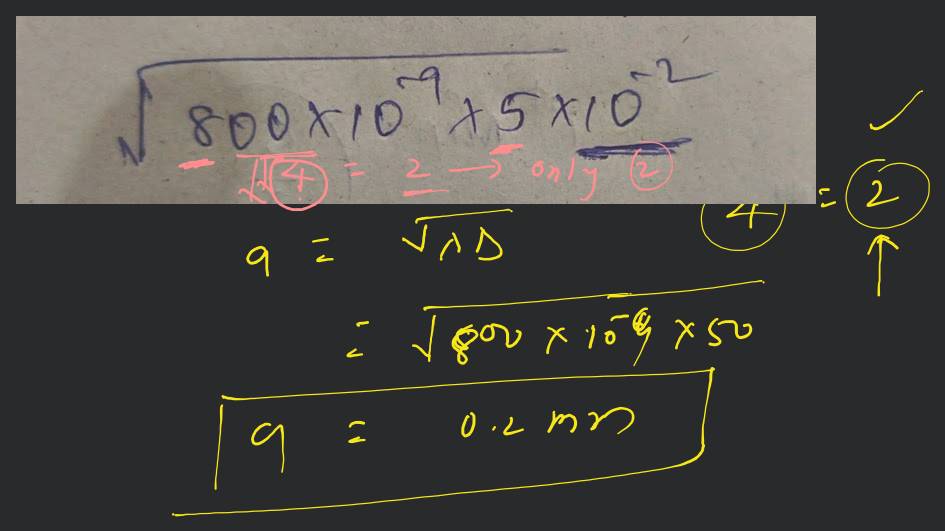 √800×10⁻⁹ × 5×10⁻²
√√4 = 2 → only 2
4 = 2
a = √λD
= √800 × 10⁻⁹ × 50
a = 0.2 mm